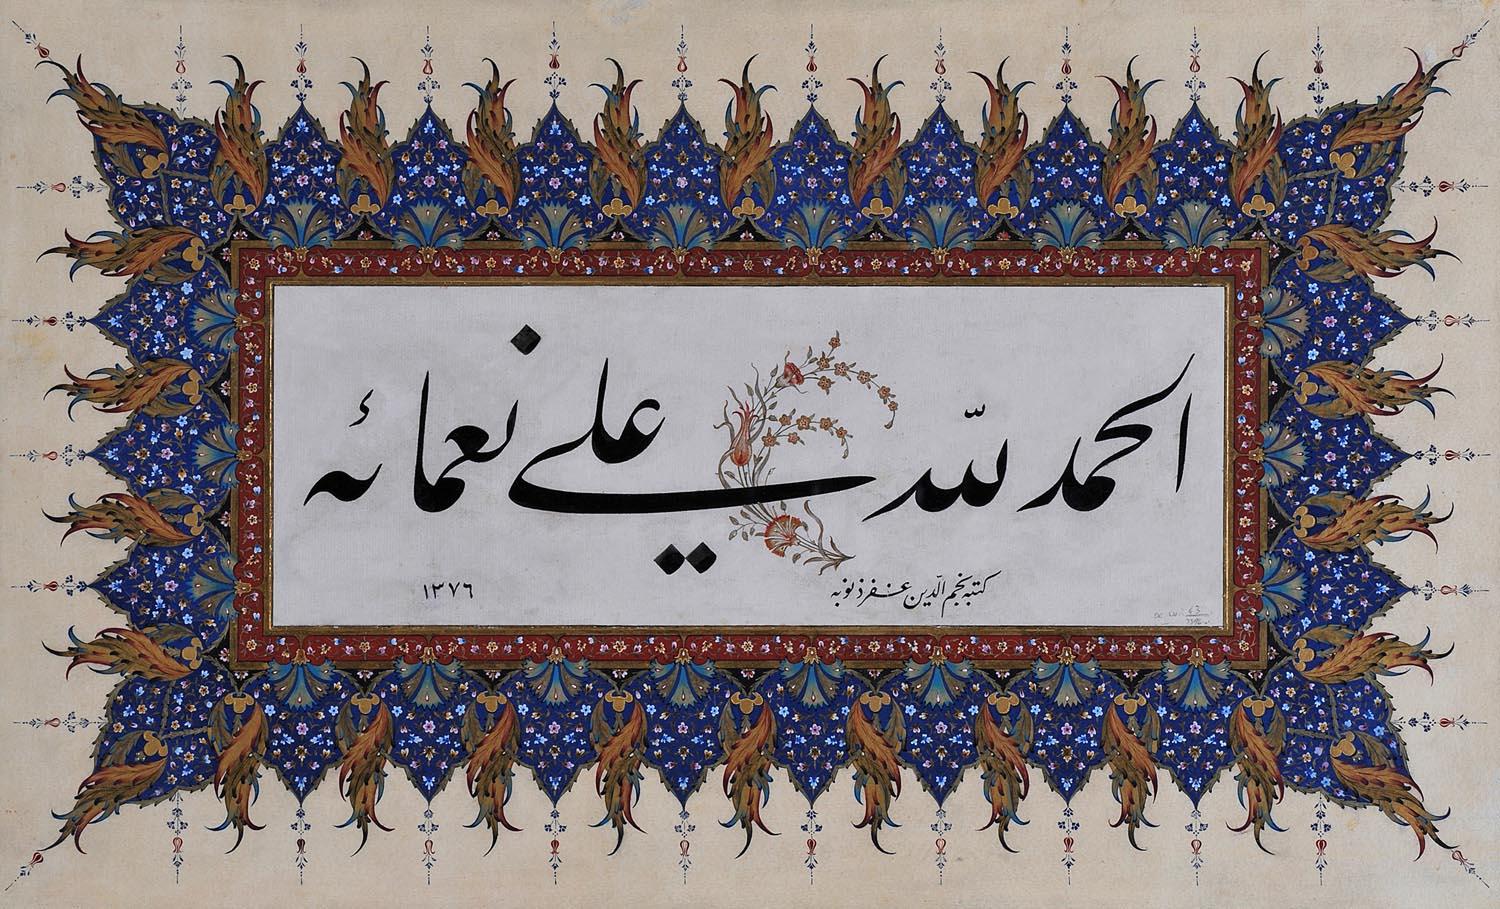 الحمد لله علی نعمائه
کتبه نجم الدّین غفر ذنوبه
١٣٧٦